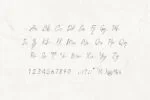 Aa Bb Cc Dd Ee Ff Gg Hh
Ii Jj Kk Ll Mm Nn Oo Pp Qq
Rr Ss Tt Uu Vv Ww Xx Yy Zz
1234567890